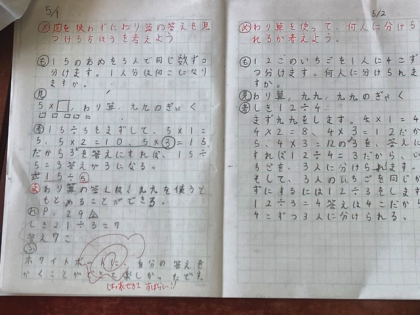 5/1
め 図を使わずにわり算の答えを見
つけ方ほうを考えよう
も 15このあめを3人で同じ数ず
分けます。1人分は何こになり
ますか。
見
5×□、わり算、九九のぎゃく
考 15÷5をまずして、5×1=
5、5×2=10、5×③=15
だから3を答えにすれば、15÷
5=3答えが3になる。
15÷5
ま わり算の答えは九九を使うと
もとめることができる。
P.29
しき21÷3=7
答え7こ
ホワイトボードに、自分の答えを
かくことができて楽しかったです。
5/2
め わり算を使って、何人に分けら
れるか考えよう
も 12このいちごを1人に4こず
つ分けます。何人に分けられ
ますか。
見 わり算、九九、九九のぎゃく
考 しき12÷4
まず九九をします。4×1=4
4×2=8、4×3=12だか
ら、4×3=12の3を、答えに
すれば12÷4=3だから、
そして、3人のいちごを同じか
ずにするには12÷3をしま
12÷3=4答えは4こだから
4こずつ3人に分けられる。